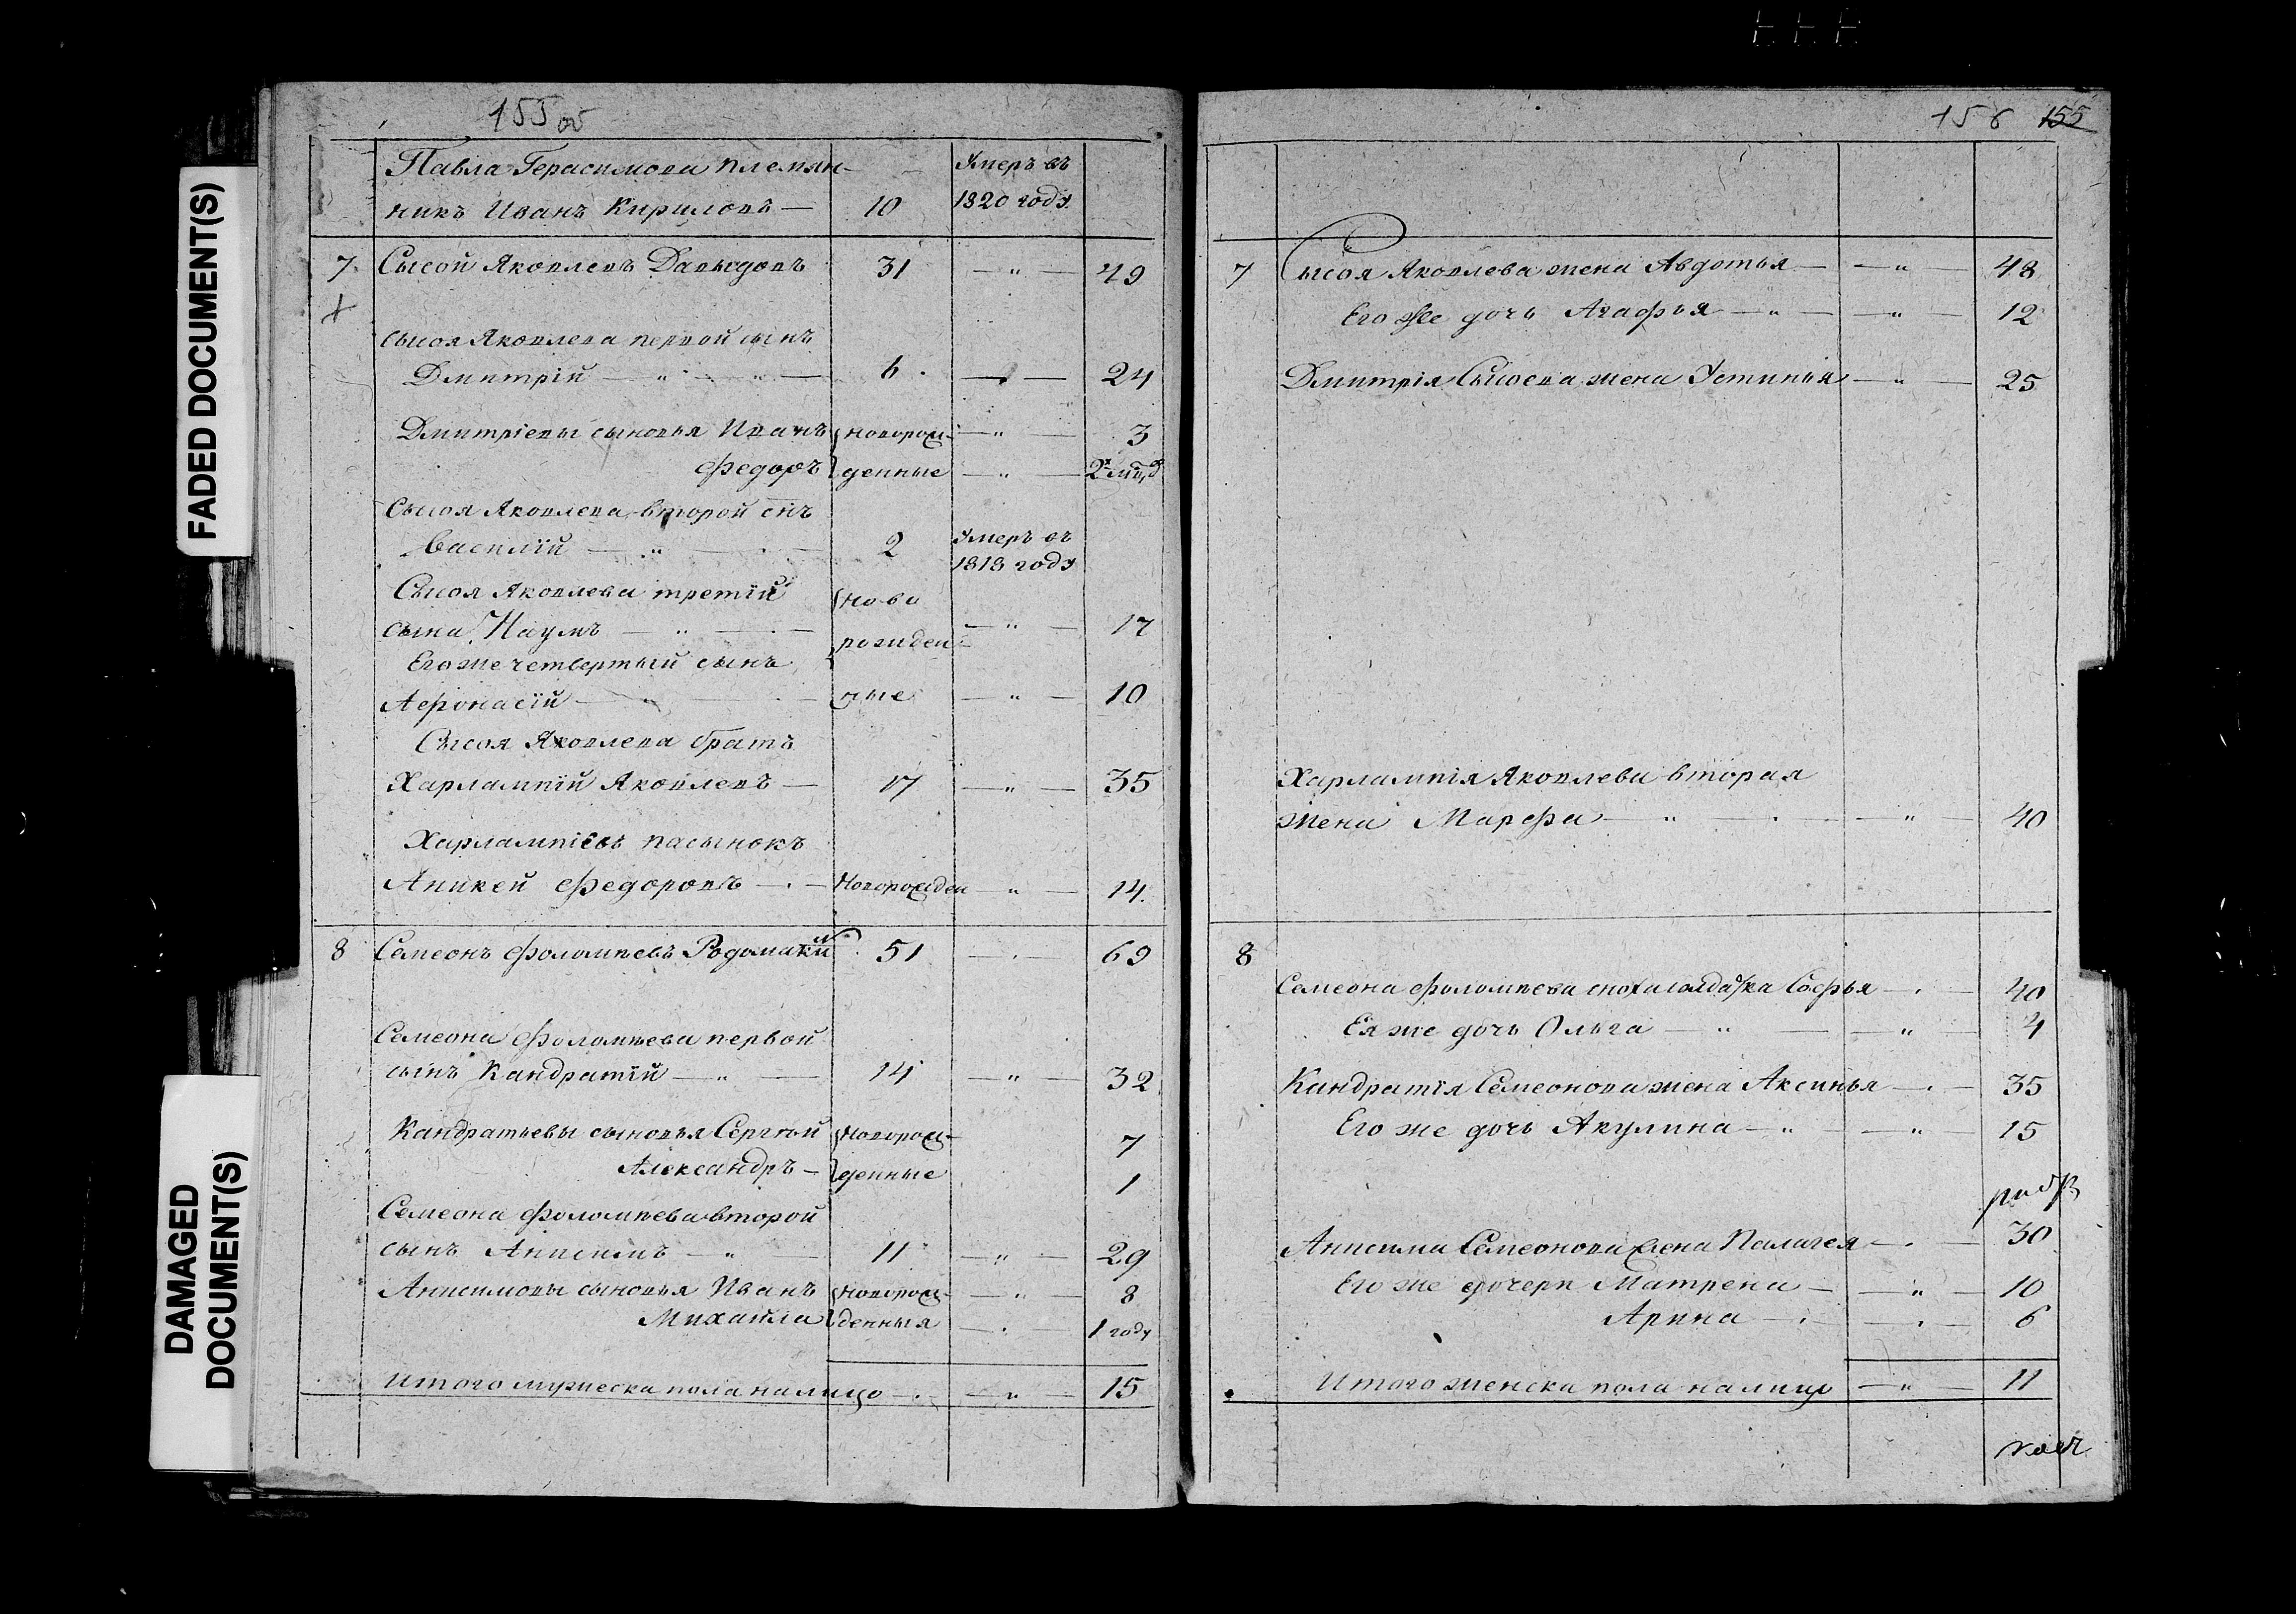 FADED DOCUMENT(S)
DAMAGED
DOCUMENT(S)
155 об
Павла Герасимова племян-
никъ Иванъ Кириловъ — 10 Умеръ въ 1820 году
7. Сысой Яковлевъ Давыдовъ 31 — " — 49
Сысоя Яковлева первой сынъ
Дмитрій — " — " — 6. — 24
Дмитріевы сыновья Иванъ новорож- — " — 3
Федоръ денные — " — 2х мцъ
Сысоя Яковлева второй снъ
Василій — " — 2 Умеръ въ 1818 году
Сысоя Яковлева третій ново
сына Наумъ — " — рожден — " — 17
Его же четвертый сынъ
Афонасій — " — ные — " — 10
Сысоя Яковлева братъ
Харлампій Яковлевъ — 17 — " — 35
Харлампіевъ пасынокъ
Аникей Федоровъ — новорожден — " — 14.
8 Семеонъ Фоломпеевъ Родомакин 51 — 69
Семеона Фоломпеева первой
сынъ Кандратій — " — 14 — " — 32
Кандратьевы сыновья Сергѣй новорож- 7
Александръ — денные 1
Семеона Фоломпеева второй
сынъ Анисимъ — " — 11 — " — 29
Анисимовы сыновья Иванъ новорож- — " — 8
Михайла денныя — 1 году
Итого мужеска пола налицо — " — 15
156 155
7 Сысоя Яковлева жена Авдотья — " — 48
Его же дочь Агафья — " — " — 12
Дмитрія Сысоева жена Устинья — " — 25
Харлампія Яковлева вторая
жена Марфа — " — " — 40
8
Семеона Фоломпеева сноха солдатка Софья — 40
Ея же дочь Ольга — " — " — 4
Кандратія Семеонова жена Аксинья — 35
Его же дочь Акулина — " — " — 15
Анисима Семеонова жена Палагея — 30
Его же дочери Матрена — " — 10
Арина — 6
Итого женска пола налицо — " — 11